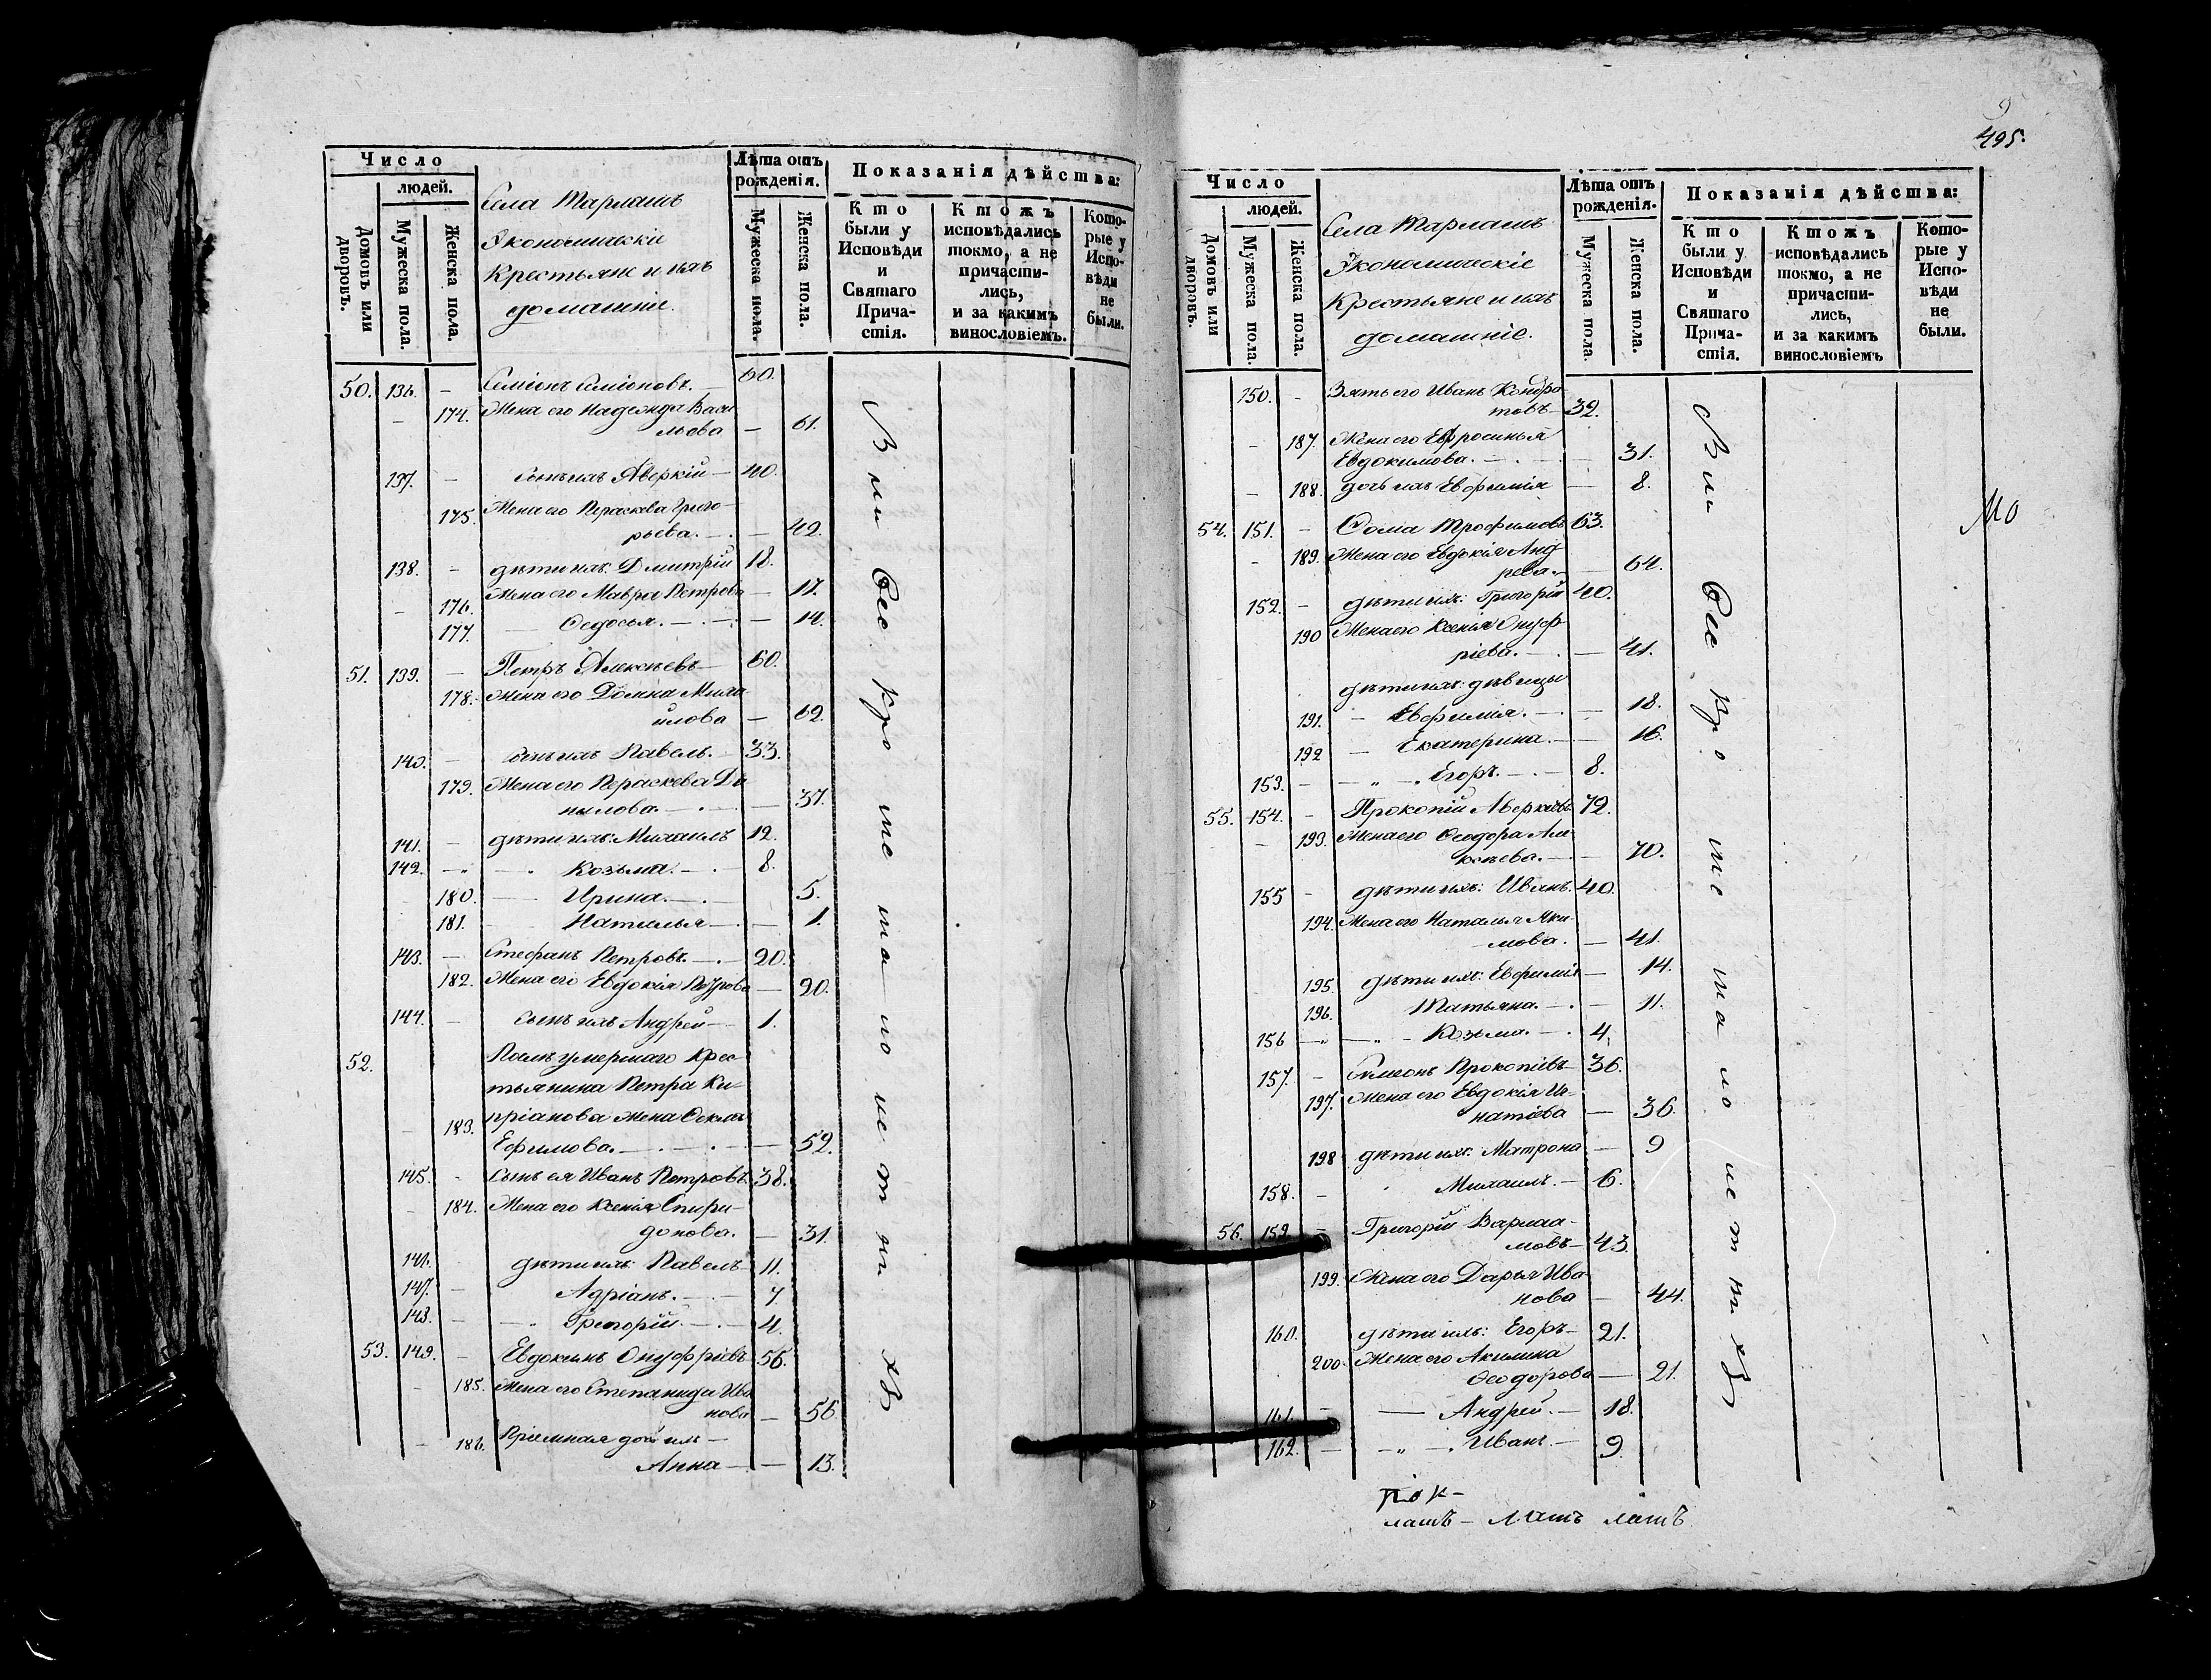 Число
людей.
Домовъ или дворовъ.
Мужеска пола.
Женска пола.
Села Тарлашъ
Экономическiе
Крестьяне и ихъ
домашнiе.
Лѣта отъ рожденiя.
Мужеска пола.
Женска пола.
Показанiя дѣйства:
Кто были у Исповѣди и Святаго Причастiя.
Ктожъ исповѣдались токмо, а не причастились, и за какимъ винословiемъ.
Которые у Исповѣди не были.
50. 136. – Симiонъ Симiоновъ. – 60.
– 174. Жена его Надежда Васи
льева – 61.
137. – сынъ ихъ Аверкiй – 40.
175. Жена его Пераскева Григо-
рьева. – 42.
138. – дѣти ихъ: Дмитрiй 18.
– 176. Жена его Мавра Петрова – 17.
177. – Ѳедосья. – 14.
51. 139. – Петръ Алексѣевъ – 60.
178. Жена его Домна Миха
йлова – 62.
140. – сынъ ихъ Павелъ. – 33.
179. Жена его Пераскева Да
нилова. – 37.
141. – дѣти ихъ: Михаилъ 12.
142. – „ – Козьма. – 8.
180. – Ирина. – 5.
181. Наталья – 1.
143. – Стефанъ Петровъ. – 20.
182. Жена его Евдокiя Петрова – 20.
144. – сынъ ихъ Андрей – 1.
52. Послѣ умершаго Крес-
тьянина Петра Ки-
183. прiанова жена Ѳекла
Ефимова. – 52.
145. – Сынъ ея Иванъ Петровъ. 38.
– 184. Жена его Ксенiя Спири-
донова. – 31.
146. дѣти ихъ: Павелъ – 11.
147. – Адрiанъ. – 7.
148. – „ Григорiй. – 4.
53. 149. – Евдокимъ Онуфрiевъ 56.
– 185. Жена его Степанида Ива
нова – 56.
– 186. Прiемная дочь ихъ –
Анна – 13.
495.
Число
людей.
Домовъ или дворовъ.
Мужеска пола.
Женска пола.
Села Тарлашъ
Экономическiе
Крестьяне и ихъ
домашнiе.
Лѣта отъ рожденiя.
Мужеска пола.
Женска пола.
Показанiя дѣйства:
Кто были у Исповѣди и Святаго Причастiя.
Ктожъ исповѣдались токмо, а не причастились, и за какимъ винословiемъ
Которые у Исповѣди не были.
150. – Зять его Иванъ Кондра
товъ – 32.
– 187. Жена его Евфросинья
Евдокимова. – 31.
– 188. дочь ихъ Евфимiя – 8.
54. 151. – Ѳома Трофимовъ 63.
– 189. Жена его Евдокiя Анд
реева – 64.
152. – дѣти ихъ: Григорiй 40.
190 Жена его Ксенiя Онуф-
рiева. – 41.
дѣти ихъ: дѣвицы
191. – Евфимiя. – 18.
192 – Екатерина. – 16.
153. – „ – Егоръ. – 8.
55. 154. – Прокопiй Аверкiевъ 72.
– 193. Жена его Ѳеодора Але-
ксѣева. – 70.
155 – дѣти ихъ: Иванъ. 40.
194. Жена его Наталья Яки-
мова. – 41.
195. дѣти ихъ: Евфимiя – 14.
196. Татьяна. – 11.
156 – „ – Козьма. – 4.
157. – Симеонъ Прокопiевъ 36.
197. Жена его Евдокiя Иг-
натiева – 36.
198 дѣти ихъ: Матрона – 9
158. – Михаилъ. – 6.
56. 159. – Григорiй Варлаа-
мовъ – 43.
199. Жена его Дарья Ива
нова – 44.
160. дѣти ихъ: Егоръ – 21.
200. Жена его Акилина
Ѳеодорова – 21.
161. – Андрей. – 18.
162. – „ – Иванъ. – 9.